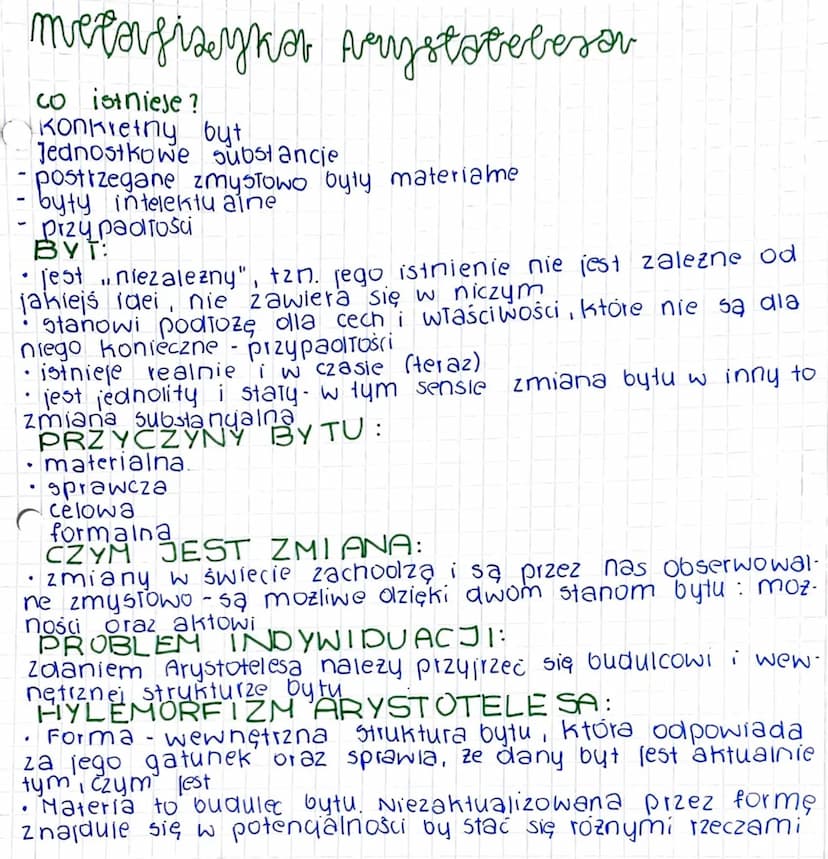 metafizyka Arystotelesa
co istnieje?
konkretny byt
Jednostkowe substancje
- postrzegane zmysłowo byty materialne
- byty intelektualne
- przypadłości
BYT:
• jest „niezależny", tzn. jego istnienie nie jest zależne od
jakiejś idei, nie zawiera się w niczym
• stanowi podłożę dla cech i właściwości, które nie są dla
niego konieczne - przypadłości
• istnieje realnie i w czasie (teraz)
• jest jednolity i stały - w tym sensie zmiana bytu w inny to
zmiana substancjalna
PRZYCZYNY BYTU:
• materialna
• sprawcza
celowa
formalna
CZYM JEST ZMIANA:
• zmiany w świecie zachodzą i są przez nas obserwowal-
ne zmysłowo - są możliwe dzięki dwom stanom bytu: moż-
ności oraz aktowi
PROBLEM INDYWIDUACJI:
Zdaniem Arystotelesa należy przyjrzeć się budulcowi i wew-
nętrznej strukturze bytu
HYLEMORFIZM ARYSTOTELESA:
• Forma - wewnętrzna struktura bytu, która odpowiada
za jego gatunek oraz sprawia, że dany byt jest aktualnie
tym, czym jest
• Materia to budulec bytu. Niezaktualizowana przez formę
znajduje się w potencjalności by stać się różnymi rzeczami